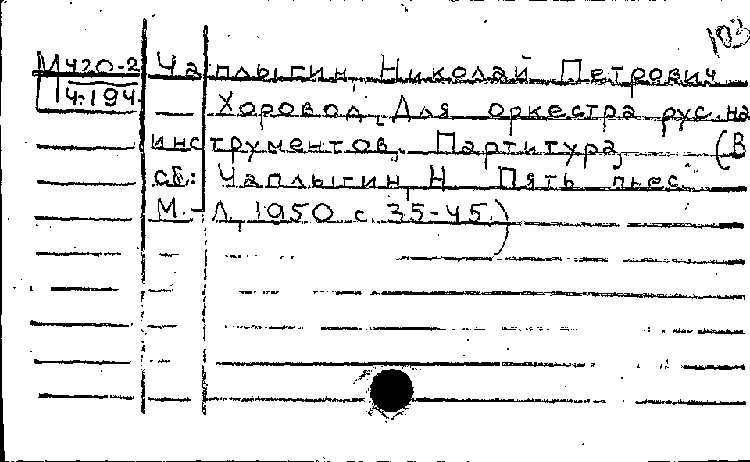 103
М 420-2 Чаплыгин, Николай Петрович
4.194 Хоровод. Для оркестра рус. на
инструментов. Партитура, (В
сб.: Чаплыгин, Н Пять пьес
М.-Л, 1950 с. 35-45.)